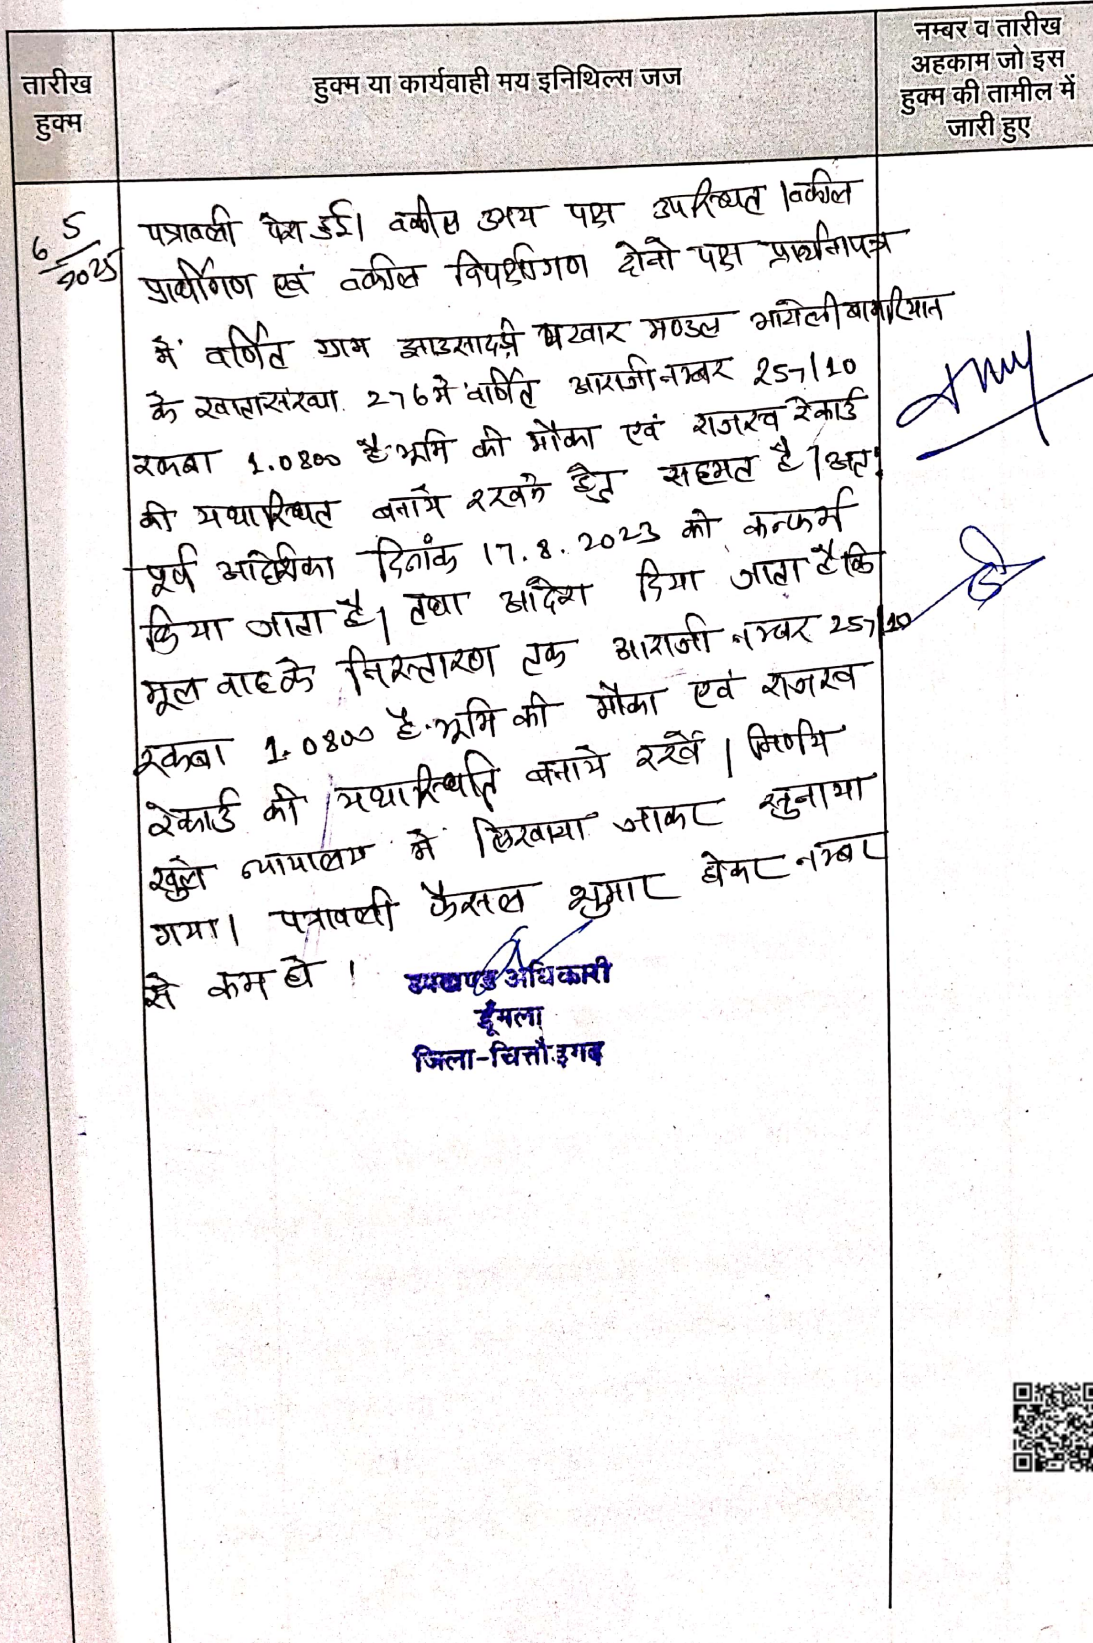 तारीख
हुक्म
हुक्म या कार्यवाही मय इनिथिल्स जज
नम्बर व तारीख
अहकाम जो इस
हुक्म की तामील में
जारी हुए
6/5/2025
पत्रावली पेश हुई। वकील उभय पक्ष उपस्थित। वकील
प्रार्थीगण एवं वकील विपक्षीगण दोनो पक्ष प्रार्थनापत्र
में वर्णित ग्राम पटवार मण्डल
के खातासंख्या 276 मे वर्णित आराजी नम्बर 257/10
रकबा 1.0800 है. भूमि की मौका एवं राजस्व रेकार्ड
की यथास्थित बनाये रखने हेतु सहमत है। अतः
पूर्व आदेशिका दिनांक 17.8.2023 को कन्फर्म
किया जाता है। तथा आदेश दिया जाता है कि
मूल वाद के निस्तारण तक आराजी नम्बर 257/10
रकबा 1.0800 है. भूमि की मौका एवं राजस्व
रेकार्ड की यथास्थिति बनाये रखें। निर्णय
खुले न्यायालय में लिखाया जाकर सुनाया
गया। पत्रावली फैसल शुमार होकर नम्बर
से कम हो।
उपखण्ड अधिकारी
डूंगला
जिला-चित्तौड़गढ़